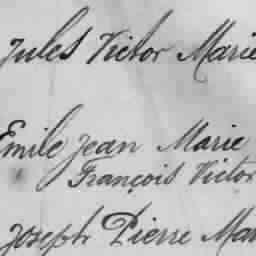 Jules Victor Marie
Emile Jean Marie
François Victor
Joseph Pierre